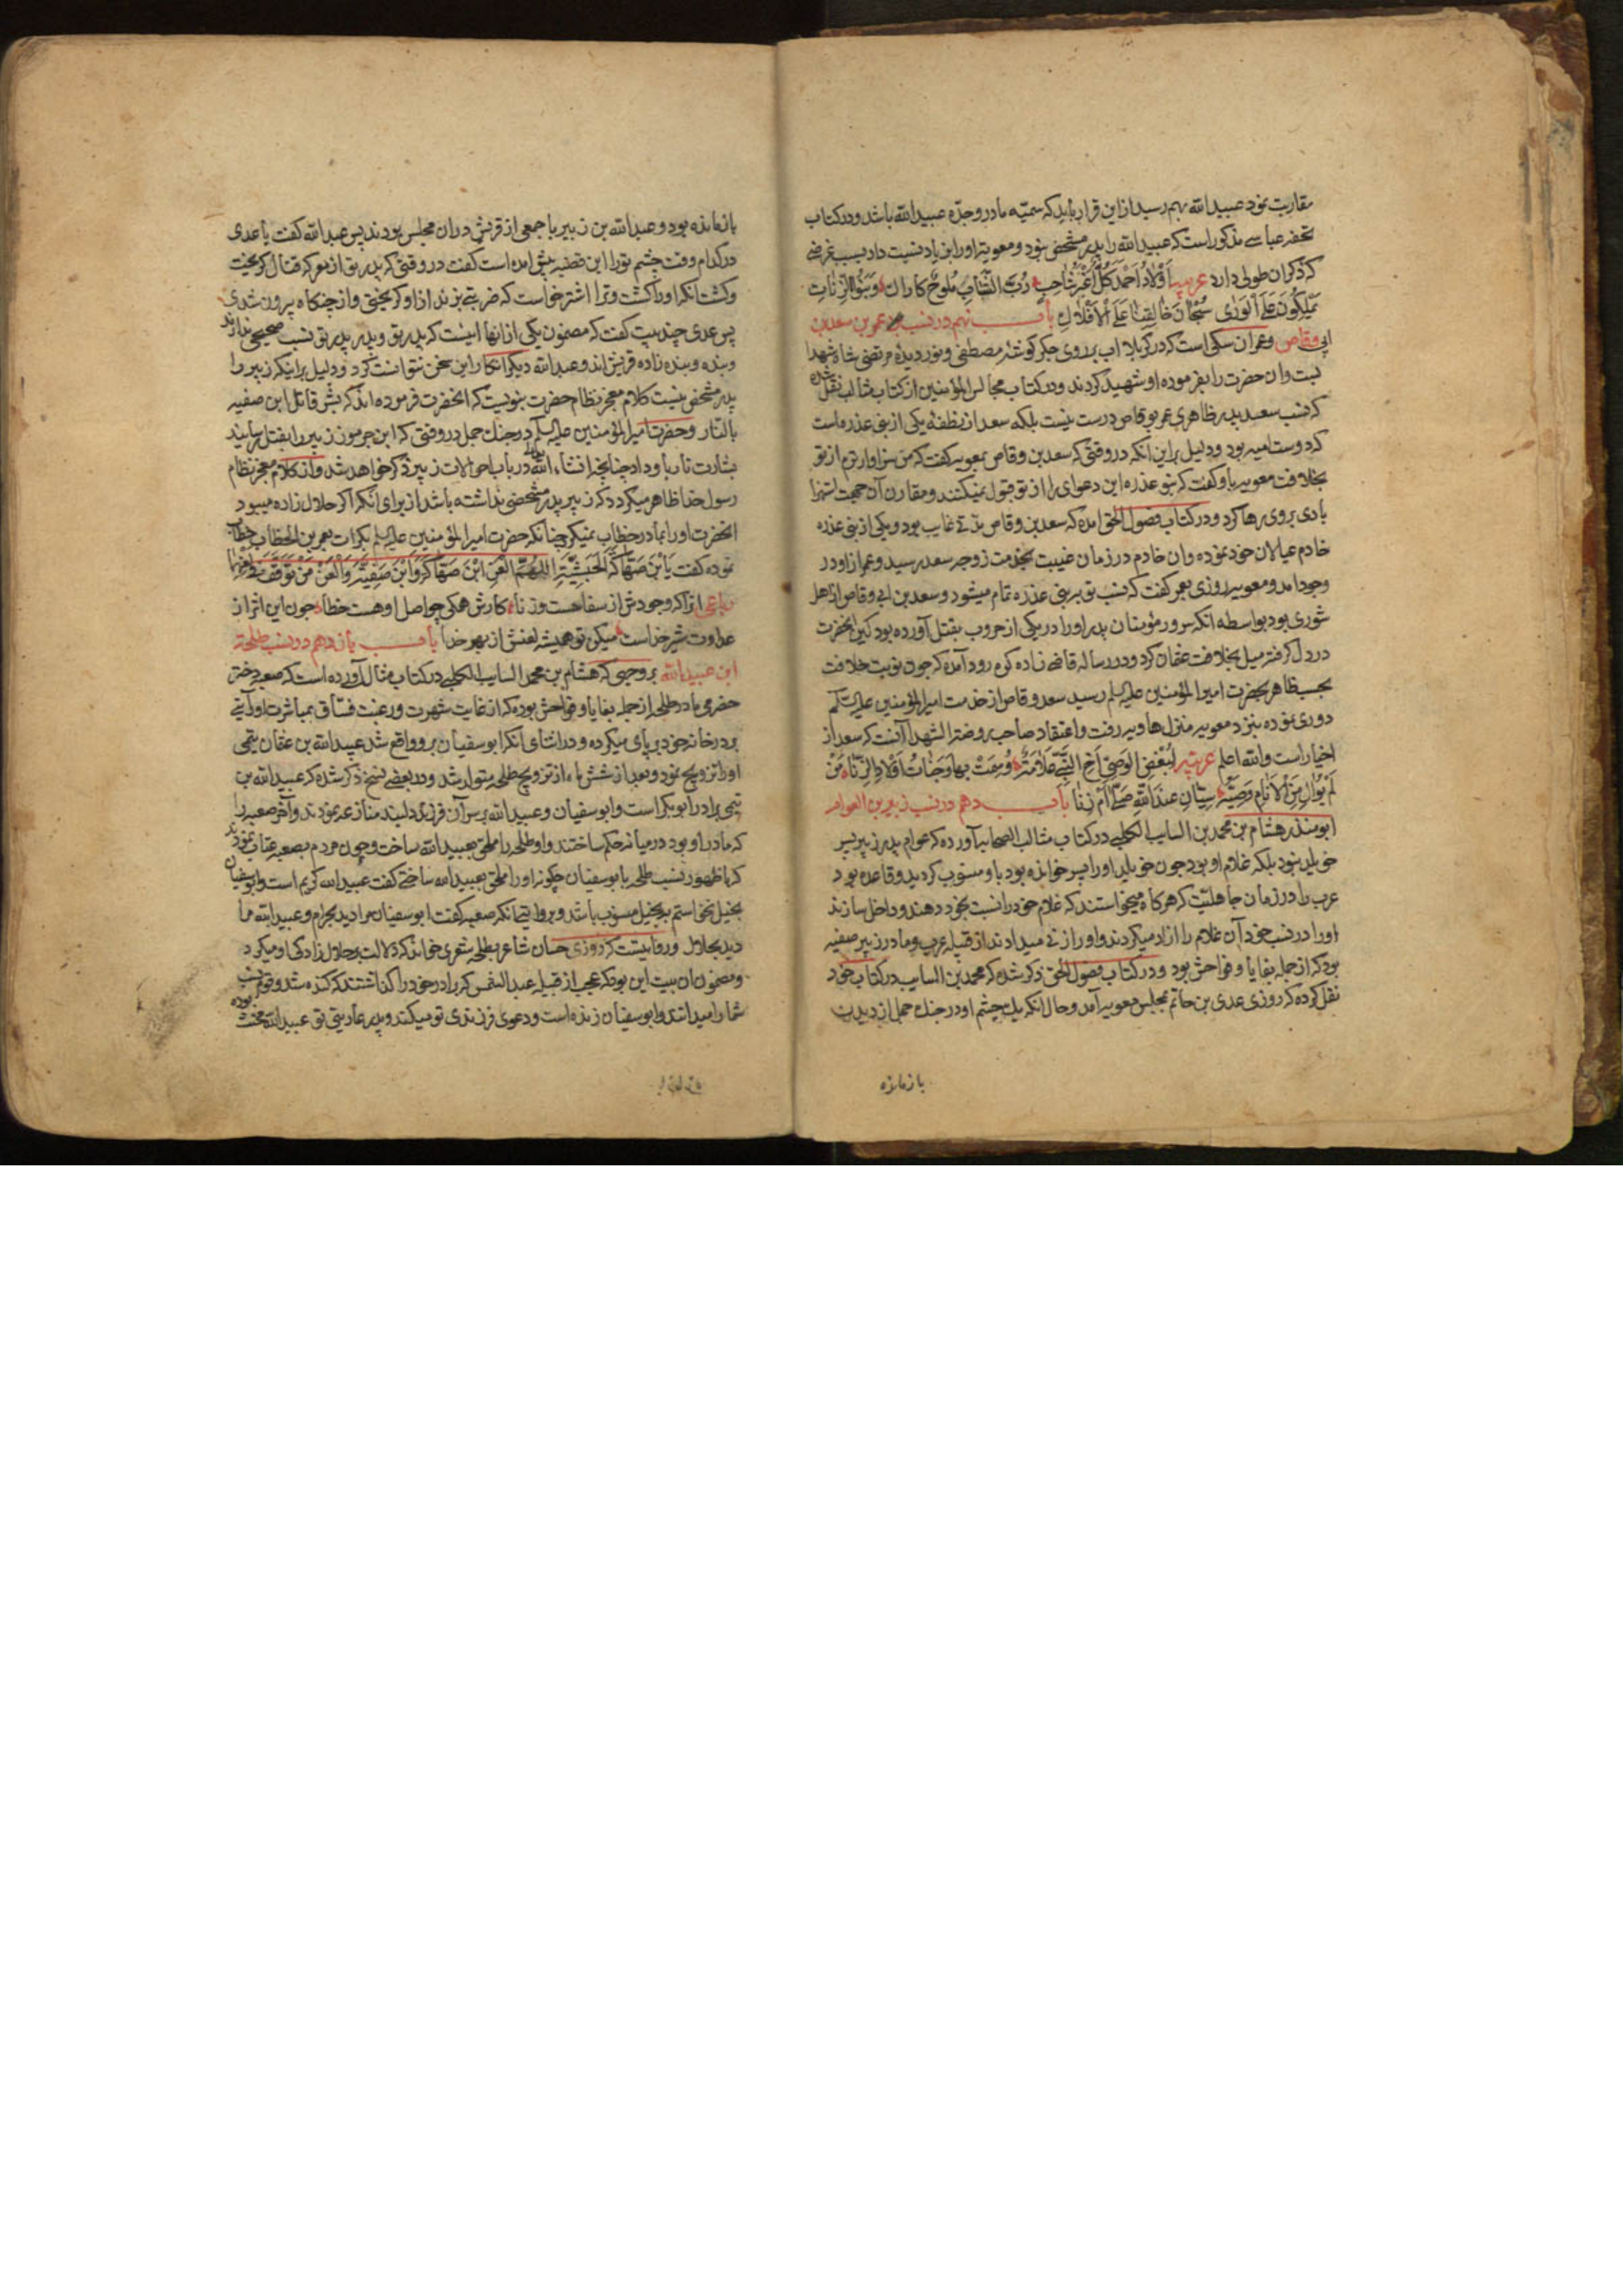 مقاربت نمود عبیدالله بهم رسید از این قرار باید که سمیّه مادر و جدّه عبیدالله باشد و در کتاب
تحفه عباسی مذکور است که عبیدالله را پدر مشخصی نبود و معویه او را بزیاد نسبت داد بسبب غرضی
که ذکر ان طولی دارد عربیه اولاد احمد کل
یملکون علی الوری سبحان خالقنا علی الافلاک باب نهم در نسب عمر بن سعد بن
ابی وقاص و عمر ان سکی است که در کربلا اب بر روی جکر کوشه مصطفی و نور دیده مرتضی شاه شهدا
بست وان حضرت را بفرموده او شهید کردند و در کتاب مجالس المؤمنین از کتاب مثالب نقل شده
که نسب سعد بپدر ظاهری عمر بو قاص درست نیست بلکه سعد از نطفه یکی از بنی عذره است
که دوست امیه بود و دلیل بر این انکه در وقتی که سعد بن وقاص بمعویه کفت که من سزاوارترم از تو
بخلافت معویه باو کفت که بنو عذره این دعوای را از تو قبول نمیکنند و مقارن آن جهت استهزا
بادی بر وی رها کرد و در کتاب فصول الحق امده که سعد بن وقاص مدّتی غایب بود و یکی از بنی عذره
خادم عیالان خود نموده وان خادم در زمان غیبت بخدمت زوجه سعد رسید و عمر از او در
وجود امد و معویه روزی بعمر کفت که نسب تو بر بنی عذره تمام میشود و سعد بن ابی وقاص از اهل
شوری بود بواسطه انکه سرور مؤمنان پدر او را در یکی از حروب بقتل آورده بود کین انحضرت
در دل کرفته میل بخلافت عثمان کرد و در رساله قاضی زاده کوم رود آمده که چون نوبت خلافت
بحسب ظاهر بحضرت امیرالمؤمنین علیه السلم رسید سعد وقاص از خدمت امیرالمؤمنین علیه السلم
دوری نموده بنزد معویه منزل هاویه رفت و اعتقاد صاحب روضة الشهدا آنست که سعد از
اخیار است والله اعلم عربیه لبغض الوصی اخ النبی علامة
لم یوال من الانام وصیّه سیّان عند الله صلّی ام زنا باب دهم در نسب زبیر بن العوام
ابو منذر هشام بن محمد بن السایب الکلبی در کتاب مثالب الصحابه آورده که عوام پدر زبیر پسر
خویلد نبود بلکه غلام او بود چون خویلد او را پسر خوانده بود باو منسوب کردید و قاعده بود
عرب را در زمان جاهلیّت که هرکاه میخواستند که غلام خود را نسبت بخود دهند و داخل سازند
او را در نسب خود آن غلام را ازاد میکردند و او را زنی میدادند از قبیله عرب و مادر زبیر صفیه
بود که از جمله بغایا و فواحش بود و در کتاب فصول الحق ذکر شده که محمد بن السایب در کتاب خود
نقل کرده که روزی عدی بن حاتم بمجلس معویه آمد و حال انکه یک چشم او در جنک جمل از دیدن
بازمانده
بازمانده بود و عبدالله بن زبیر با جمعی از قریش در ان مجلس بودند پس عبدالله کفت یا عدی
در کدام وقت چشم تو را این قضیه پیش امده است کفت در وقتی که پدر تو از معرکه قتال کریخت
و کشت انکه او را کشت و ترا اشتر خواست که ضربتی بزند از او کریختی و از جنکاه بیرون شدی
پس عدی چند بیت کفت که مضمون یکی از انها اینست که پدر تو و پدر پدر تو نسب صحیحی ندارند
و بنده و بنده زاده قریش اند و عبدالله دیکر انکار این سخن نتوانست کرد و دلیل بر اینکه زبیر را
پدر مشخصی نیست کلام معجز نظام حضرت نبویست که انحضرت فرموده اند که بشر قاتل ابن صفیه
بالنار و حضرت امیرالمؤمنین علیه السلم در جنک جمل در وقتی که ابن جرموز زبیر را بقتل رسانید
بشارت نار باو داد چنانچه انشاء الله تعالی در باب احوالات زبیر ذکر خواهد شد و از کلام معجز نظام
رسول خدا ظاهر میکردد که زبیر پدر مشخصی نداشته باشد از برای انکه اکر حلال زاده میبود
انحضرت او را بمادر خطاب نمیکرد چنانکه حضرت امیرالمؤمنین علیه السلم بکرات بعمر بن الخطاب خطاب
نموده کفت یابن صهاک الحبشیة اللهم العن ابن صهاک وابن صفیّه والعن من توقف فی لعنهما
رباعی انرا که وجودش از سفاحست و زنا کارش همکی چو اصل او هست خطا چون این اثر از
عداوت شیر خداست میکن تو همیشه لعنش از بهر خدا باب یازدهم در نسب طلحة
ابن عبیدالله بر وجهی که هشام بن محمد السایب الکلبی در کتاب مثالب آورده است که صعبه دختر
حضرمی مادر طلحه از جمله بغایا و فواحش بوده که از غایت شهرت و رغبت فسّاق بمباشرت او رایتی
بر در خانه خود بر پای میکرده و در اثنای آنکه ابوسفیان بر وواقع شد عبیدالله بن عثمان تیمی
او را تزویج نمود و بعد از شش ماه از تزویج طلحه متولد شد و در بعضی نسخ ذکر شده که عبیدالله بن
تیمی برادر ابوبکر است و ابوسفیان و عبیدالله بر سر آن فرزند دلبند منازعه نمودند و آخر صعبه را
که مادر او بود در میانه حکم ساختند و او طلحه را ملحق بعبیدالله ساخت و چون مردم بصعبه عتاب نمودند
که با ظهور نسب طلحه با بوسفیان چکونه او را ملحق بعبیدالله ساختی کفت عبیدالله کریم است و ابوسفیان
بخیل نخواستم به بخیل منسوب باشد و بروایتی انکه صعبه کفت ابوسفیان مرا دید بحرام و عبیدالله مرا
دید بحلال و روایتست که روزی حسان شاعر بطلحه شعری خواند که دلالت بر حلال زادکی او میکرد
و مضمون ان بیت این بود که عجب از قبیله عبد الشمس که برادر خود را کذاشتند که کنده شد و قوم نسب
شما را میدانند و ابوسفیان زنده است و دعوی فرزندی تو میکند و پدر عاریتی تو عبیدالله مخنث بوده